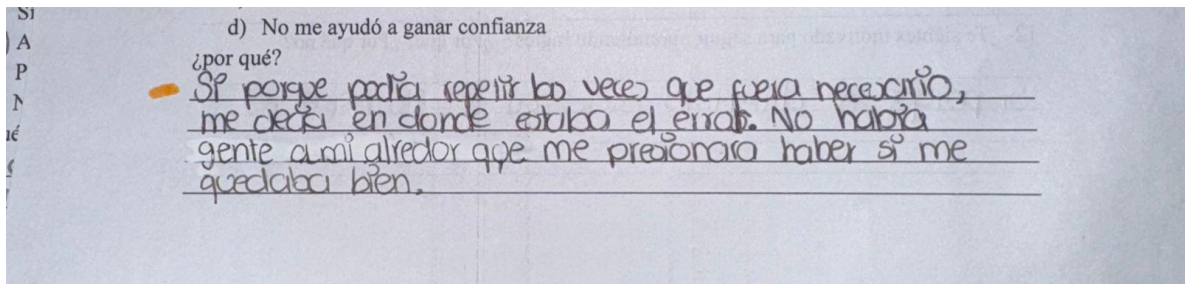 Si
) A
d) No me ayudó a ganar confianza
P
¿por qué?
Si porque podía repetir las veces que fuera necesario,
me decía en donde estaba el error. No había
gente a mi alredor que me presionara haber si me
quedaba bien.